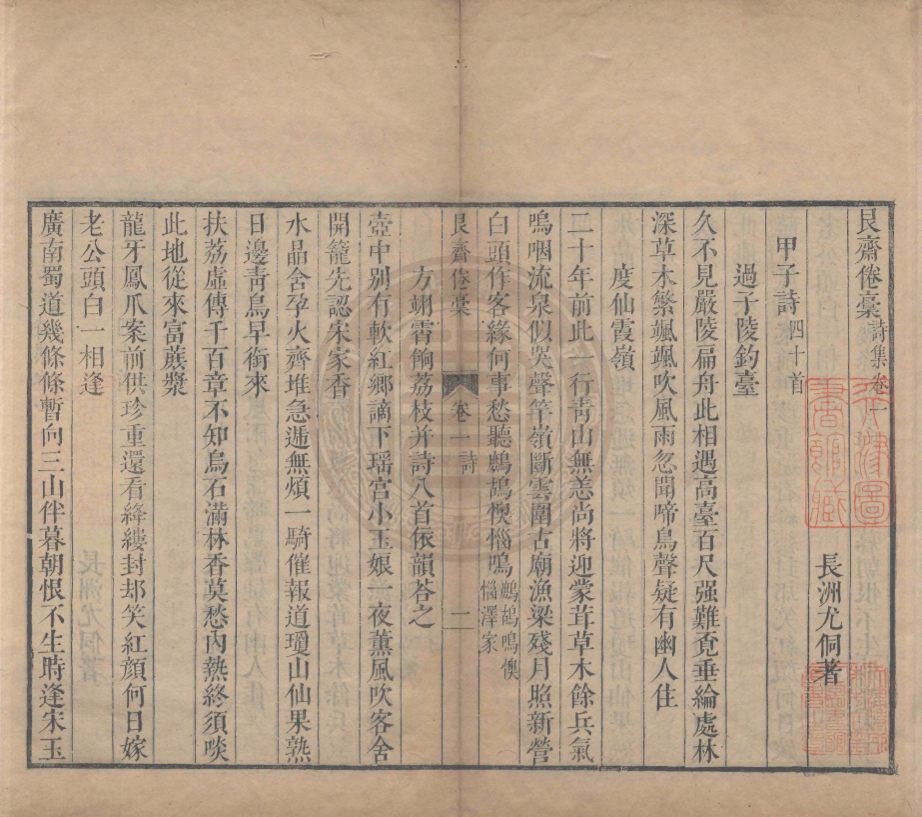 艮齋倦稾詩集卷一
長洲尤侗著
甲子詩四十首
過子陵釣臺
久不見嚴陵扁舟此相遇高臺百尺强難覔垂綸處林
深草木繁颯颯吹風雨忽聞啼鳥聲疑有幽人住
度仙霞嶺
二十年前此一行靑山無恙尚將迎蒙茸草木餘兵氣
嗚咽流泉似哭聲竿嶺斷雲圍古廟漁梁殘月照新營
白頭作客緣何事愁聽鷓鴣懊惱鳴鷓鴣鳴懊惱澤家
艮齋倦稾 卷一詩 一
方翊霄餉荔枝并詩八首依韻荅之
壺中別有軟紅鄉謫下瑶宫小玉娘一夜薰風吹客舍
開籠先認宋家香
水晶含孕火齊堆急遞無煩一騎催報道瓊山仙果熟
日邊靑鳥早銜來
扶荔虛傳千百章不知烏石滿林香莫愁內熱終須啖
此地從來富蔗漿
龍牙鳳爪案前供珍重還看絳縷封却笑紅顔何日嫁
老公頭白一相逢
廣南蜀道幾條條暫向三山伴暮朝恨不生時逢宋玉